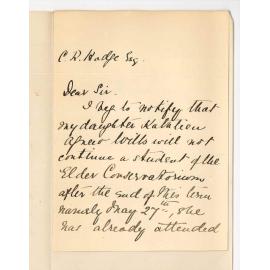 C. R. Hodge Esq.
Dear Sir.
I beg to notify that
my daughter Kathleen
Agnew Wills will not
continue a student of the
Elder Conservatorium
after the end of this term
namely May 27th, she
has already attended